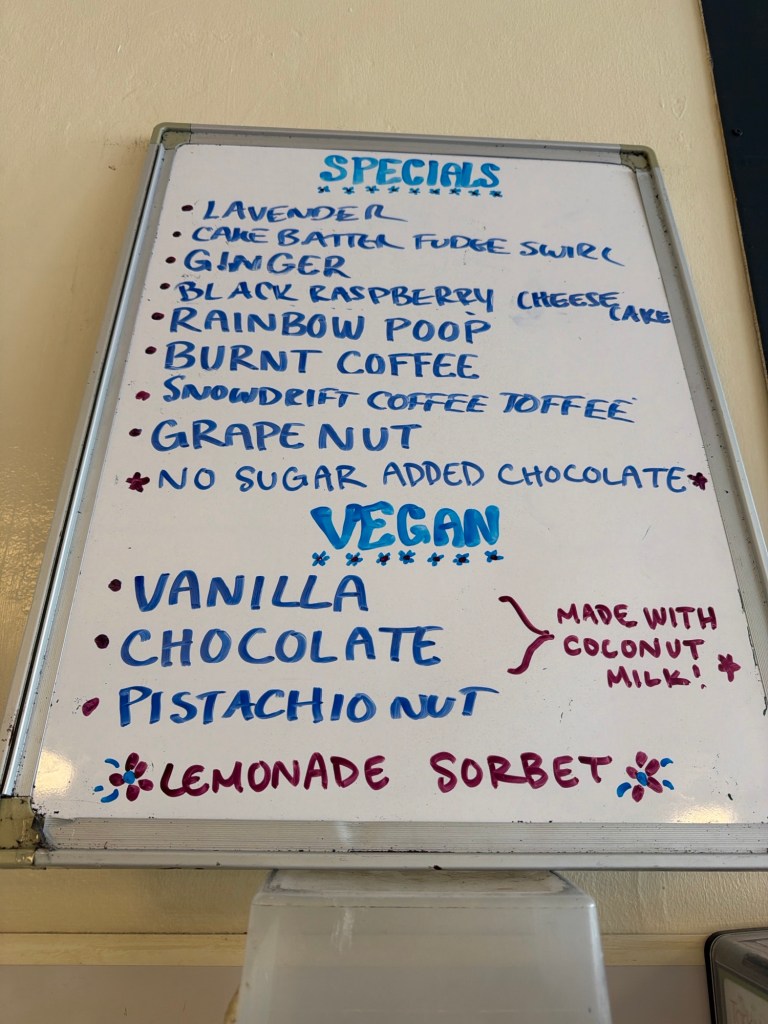 SPECIALS
• LAVENDER
• CAKE BATTER FUDGE SWIRL
• GINGER
• BLACK RASPBERRY CHEESE CAKE
• RAINBOW POOP
• BURNT COFFEE
• SNOWDRIFT COFFEE TOFFEE
• GRAPE NUT
* NO SUGAR ADDED CHOCOLATE *
VEGAN
• VANILLA
• CHOCOLATE
• PISTACHIO NUT
MADE WITH
COCONUT
MILK! *
LEMONADE SORBET